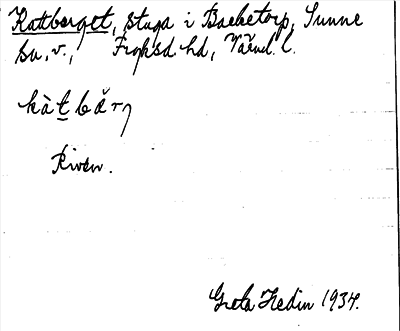 Kattberget, stuga i Backetorp, Sunne
sn, v., Fryksd. hd, Värml. l.
kàt bărη
Riven.
Greta Hedin 1934.